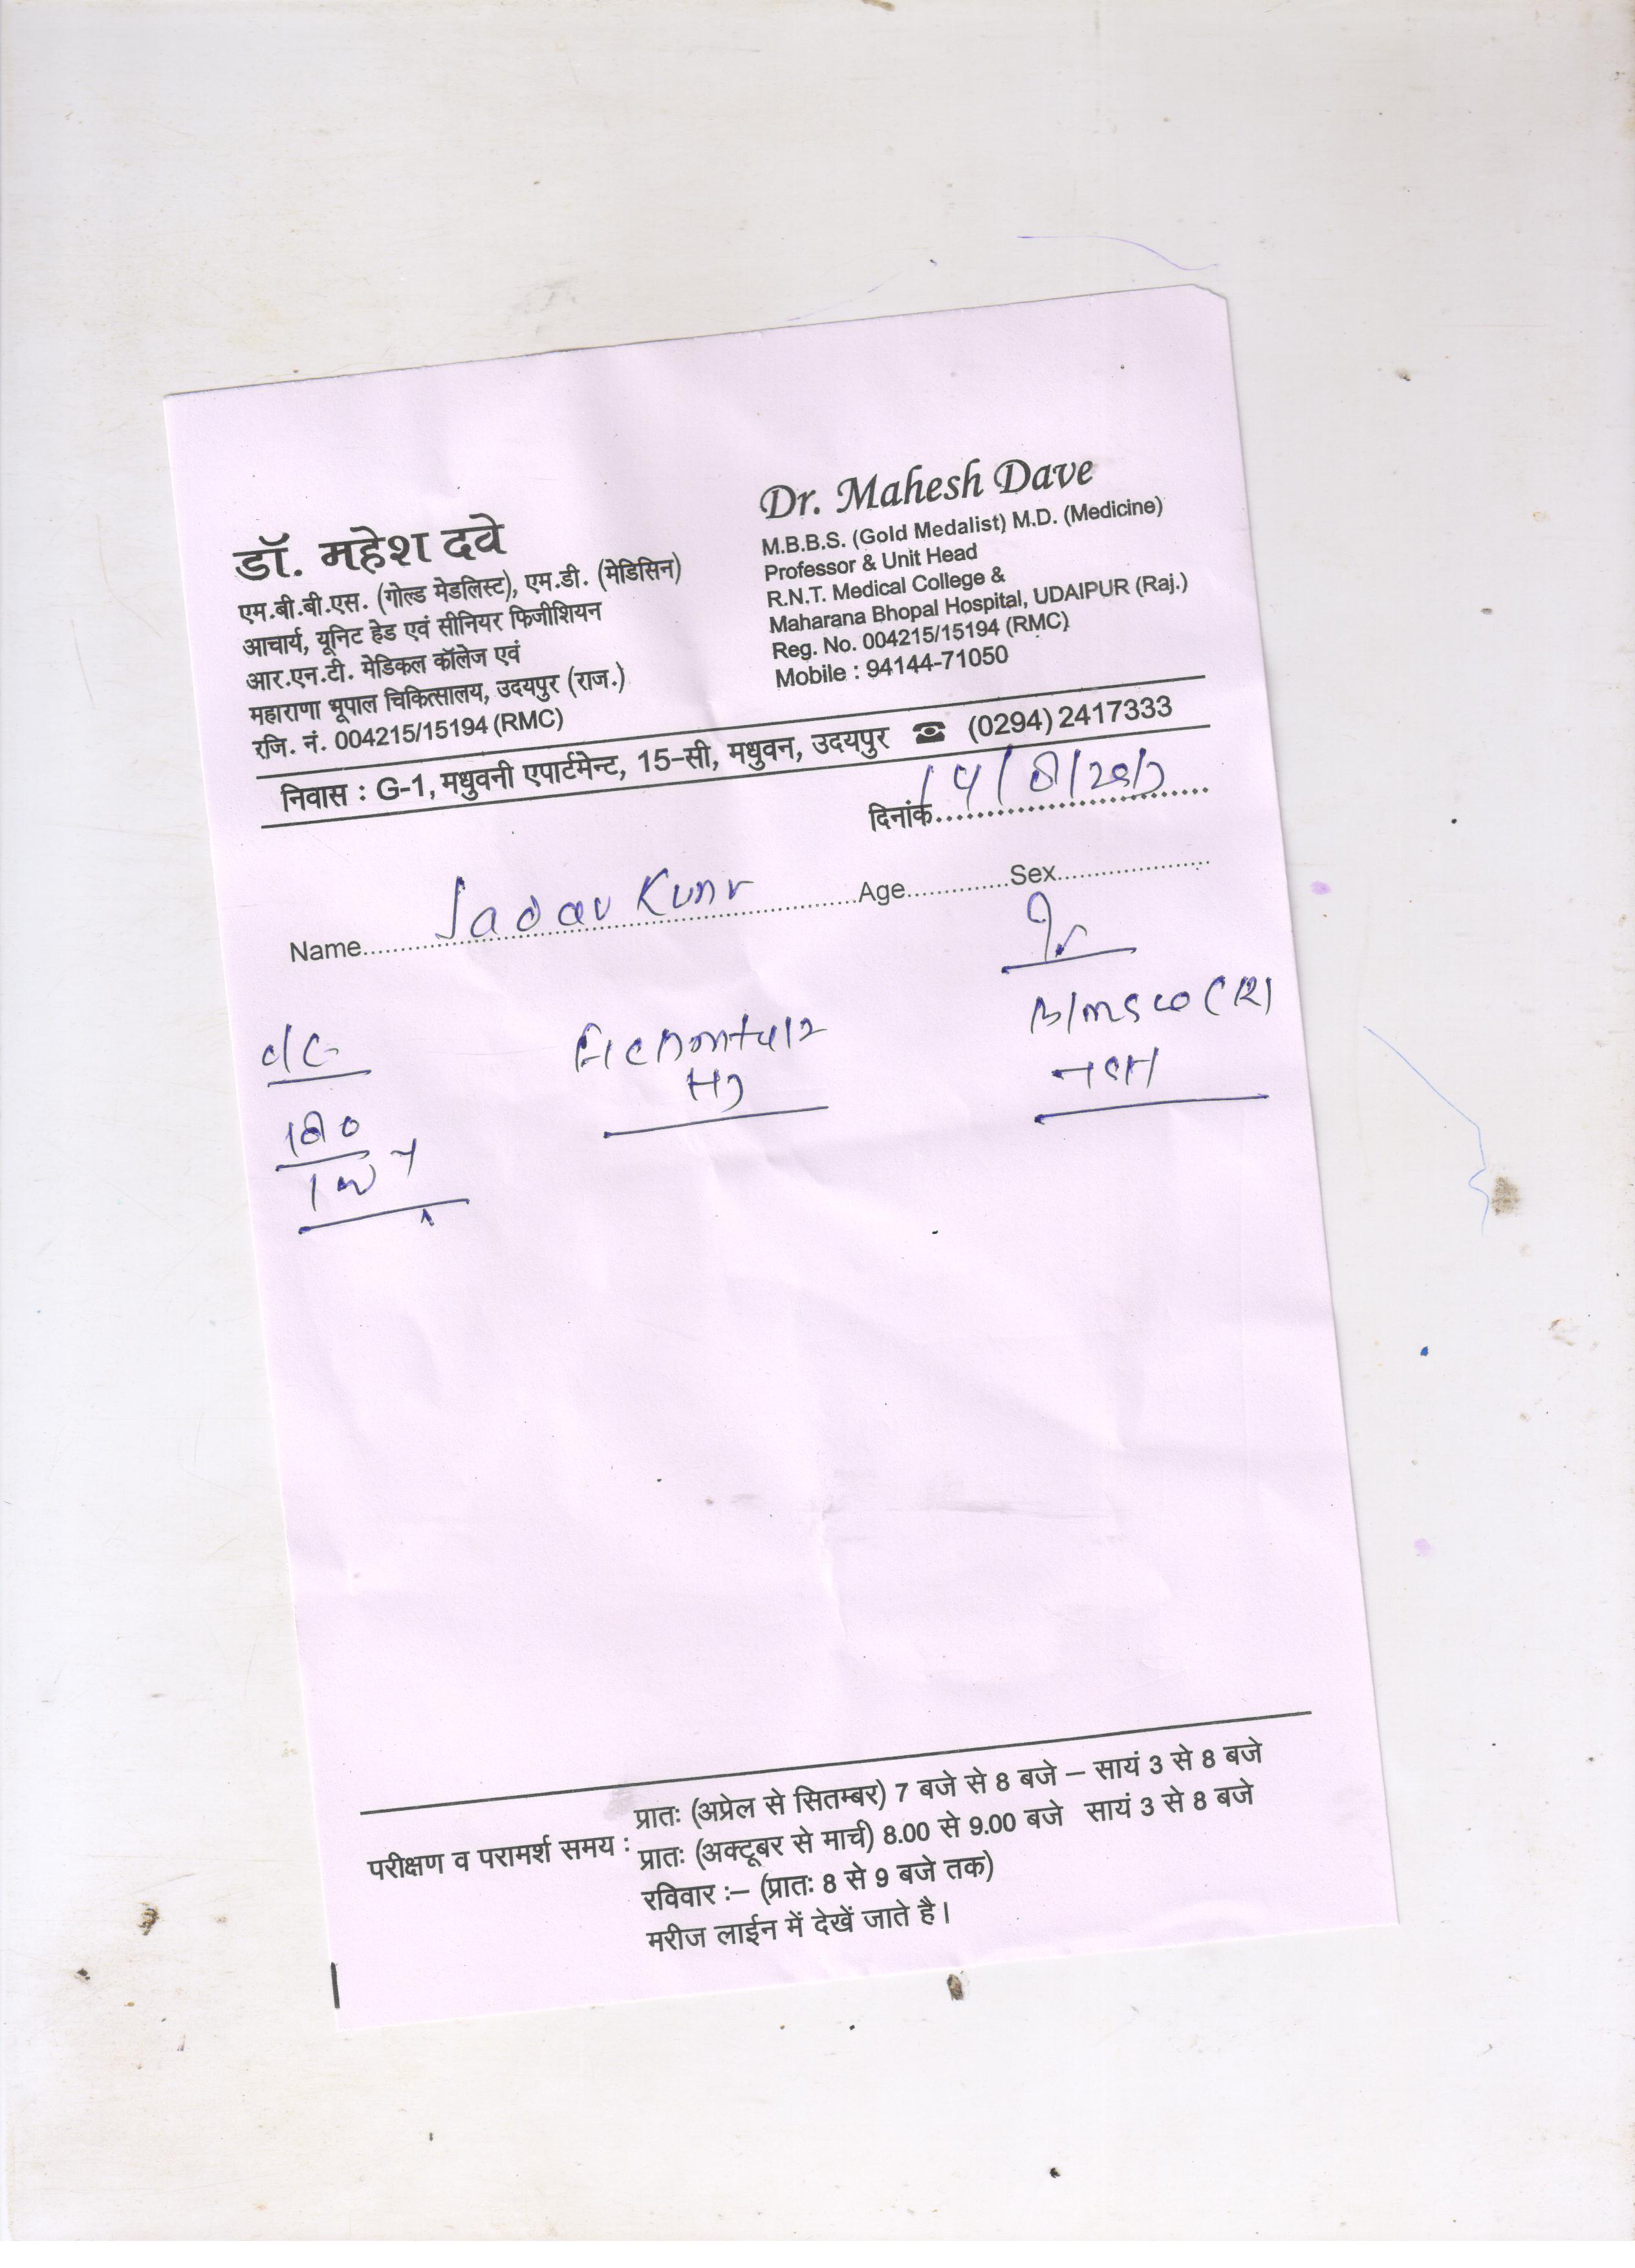 डॉ. महेश दवे
एम.बी.बी.एस. (गोल्ड मेडलिस्ट), एम.डी. (मेडिसिन)
आचार्य, यूनिट हेड एवं सीनियर फिजीशियन
आर.एन.टी. मेडिकल कॉलेज एवं
महाराणा भूपाल चिकित्सालय, उदयपुर (राज.)
रजि. नं. 004215/15194 (RMC)
Dr. Mahesh Dave
M.B.B.S. (Gold Medalist) M.D. (Medicine)
Professor & Unit Head
R.N.T. Medical College &
Maharana Bhopal Hospital, UDAIPUR (Raj.)
Reg. No. 004215/15194 (RMC)
Mobile : 94144-71050
निवास : G-1, मधुवनी एपार्टमेन्ट, 15-सी, मधुवन, उदयपुर ☎ (0294) 2417333
दिनांक
Name Age Sex
परीक्षण व परामर्श समय :
प्रातः (अप्रेल से सितम्बर) 7 बजे से 8 बजे – सायं 3 से 8 बजे
प्रातः (अक्टूबर से मार्च) 8.00 से 9.00 बजे सायं 3 से 8 बजे
रविवार :– (प्रातः 8 से 9 बजे तक)
मरीज लाईन में देखें जाते है।